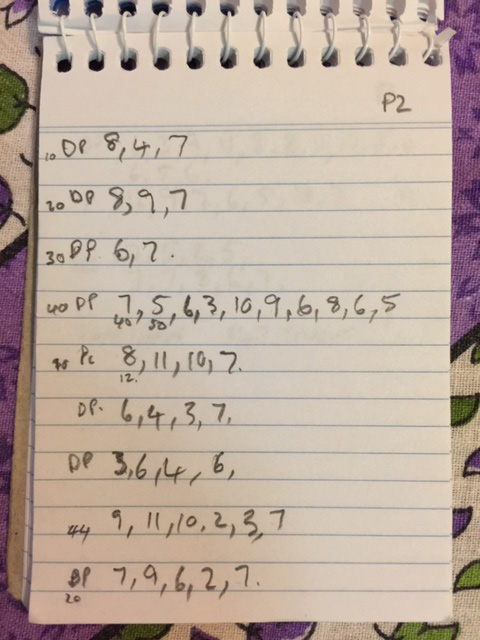 P2
10 DP 8, 4, 7
20 DP 8, 9, 7
30 DP. 6, 7.
40 DP 7, 5, 6, 3, 10, 9, 6, 8, 6, 5
40 50
PL 8, 11, 10, 7.
12.
DP. 6, 4, 3, 7,
DP 3, 6, 4, 6,
44 9, 11, 10, 2, 3, 7
DP 7, 9, 6, 2, 7.
20